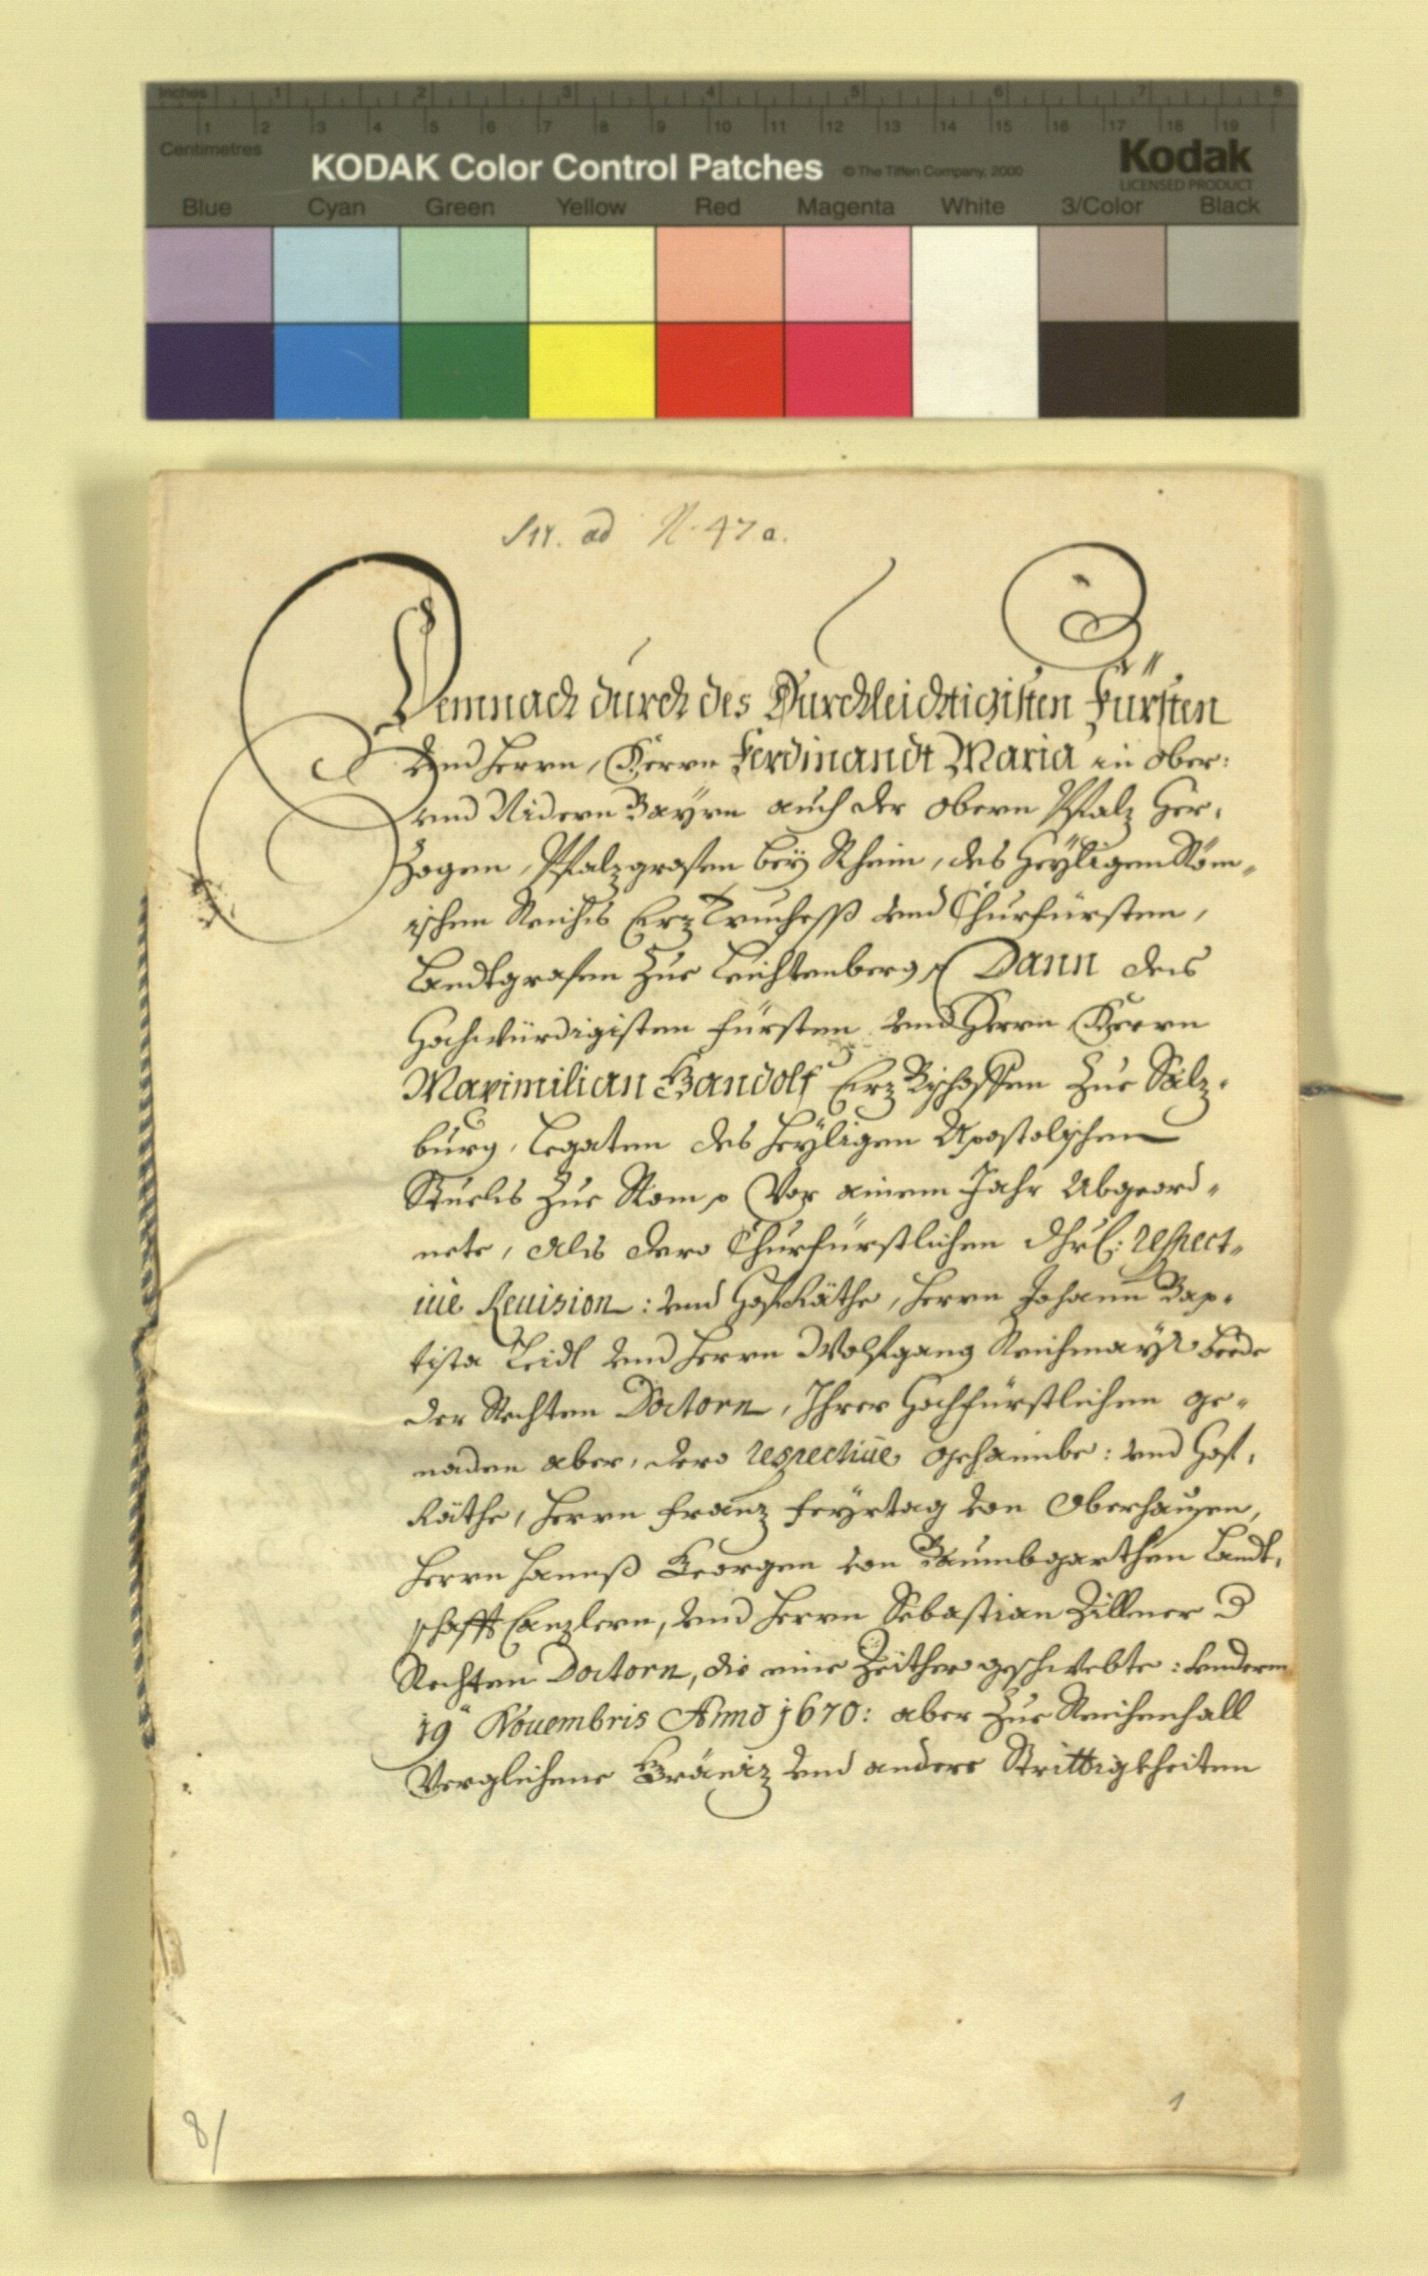 Inches 1 2 3 4 5 6 7 8
1 2 3 4 5 6 7 8 9 10 11 12 13 14 15 16 17 18 19
Centimetres
KODAK Color Control Patches © The Tiffen Company, 2000 Kodak
LICENSED PRODUCT
Blue Cyan Green Yellow Red Magenta White 3/Color Black
ad N. 47 a.
Demnach durch des Durchleichtigisten Fürsten
Vnd Herrn, Herrn Ferdinandt Maria in Ober:
vnd Nidern Bayrn auch der Obern Pfalz Her,
zogen, Pfalzgrafen bey Rhein, des Heyligen Röm,,
ischen Reichs Erz Truchseß vnd Churfürsten,
Landtgrafen zue Leichtenberg, Dann des
Hochwürdigisten Fürsten vnd Herrn Herrn
Maximilian Gandolf Erz Bischoffen zue Salz,
burg, Legaten des Heyligen Apostolischen
Stuels zue Rom, Vor ainem Jahr Abgeord,,
nete, Als dero Churfürstlichen Dhrl: respect,,
iuè Reuision: vnd HofRäthe, Herrn Johann Bap,
tista Leidl vnd Herrn Wolfgang Reichmayr beede
der Rechten Doctorn, Ihrer Hochfürstlichen ge,
naden aber, dero respectiuè gehaimbe: vnd Hof,
Räthe, Herrn Franz Feyrtag von Oberhausen,
Herrn Hannß Georgen von Paumbgarthen Landt,
schafft Canzlern, vnd Herrn Sebastian Zillner d
Rechten Doctorn, die eine Zeither geschwebte: vnderm
19 Nouembris Anno 1670: aber zue Reichenhall
Verglichene Gräniz vnd andere Strittigkheiten
8/
1